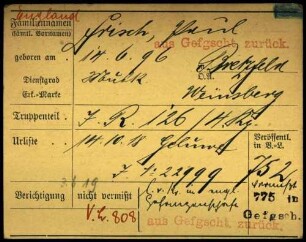 Ausland
Familiennamen Frisch, Paul
(sämtl. Vornamen)
aus Gefgscht zurück.
geboren am 14.6.96 Bretzfeld
Dienstgrad Musk. O.A. Weinsberg
Erk.-Marke
Truppenteil J. R. 126 /4. Kp.
Urliste 14.10.18 Veröffentl. in V.-L.
J. 22999 752
Berichtigung nicht vermißt vermisst
3.6.19 l. V. u. in engl. 775 in
V.L. 808 Gefangenschaft Gefgsch.
aus Gefgscht zurück.